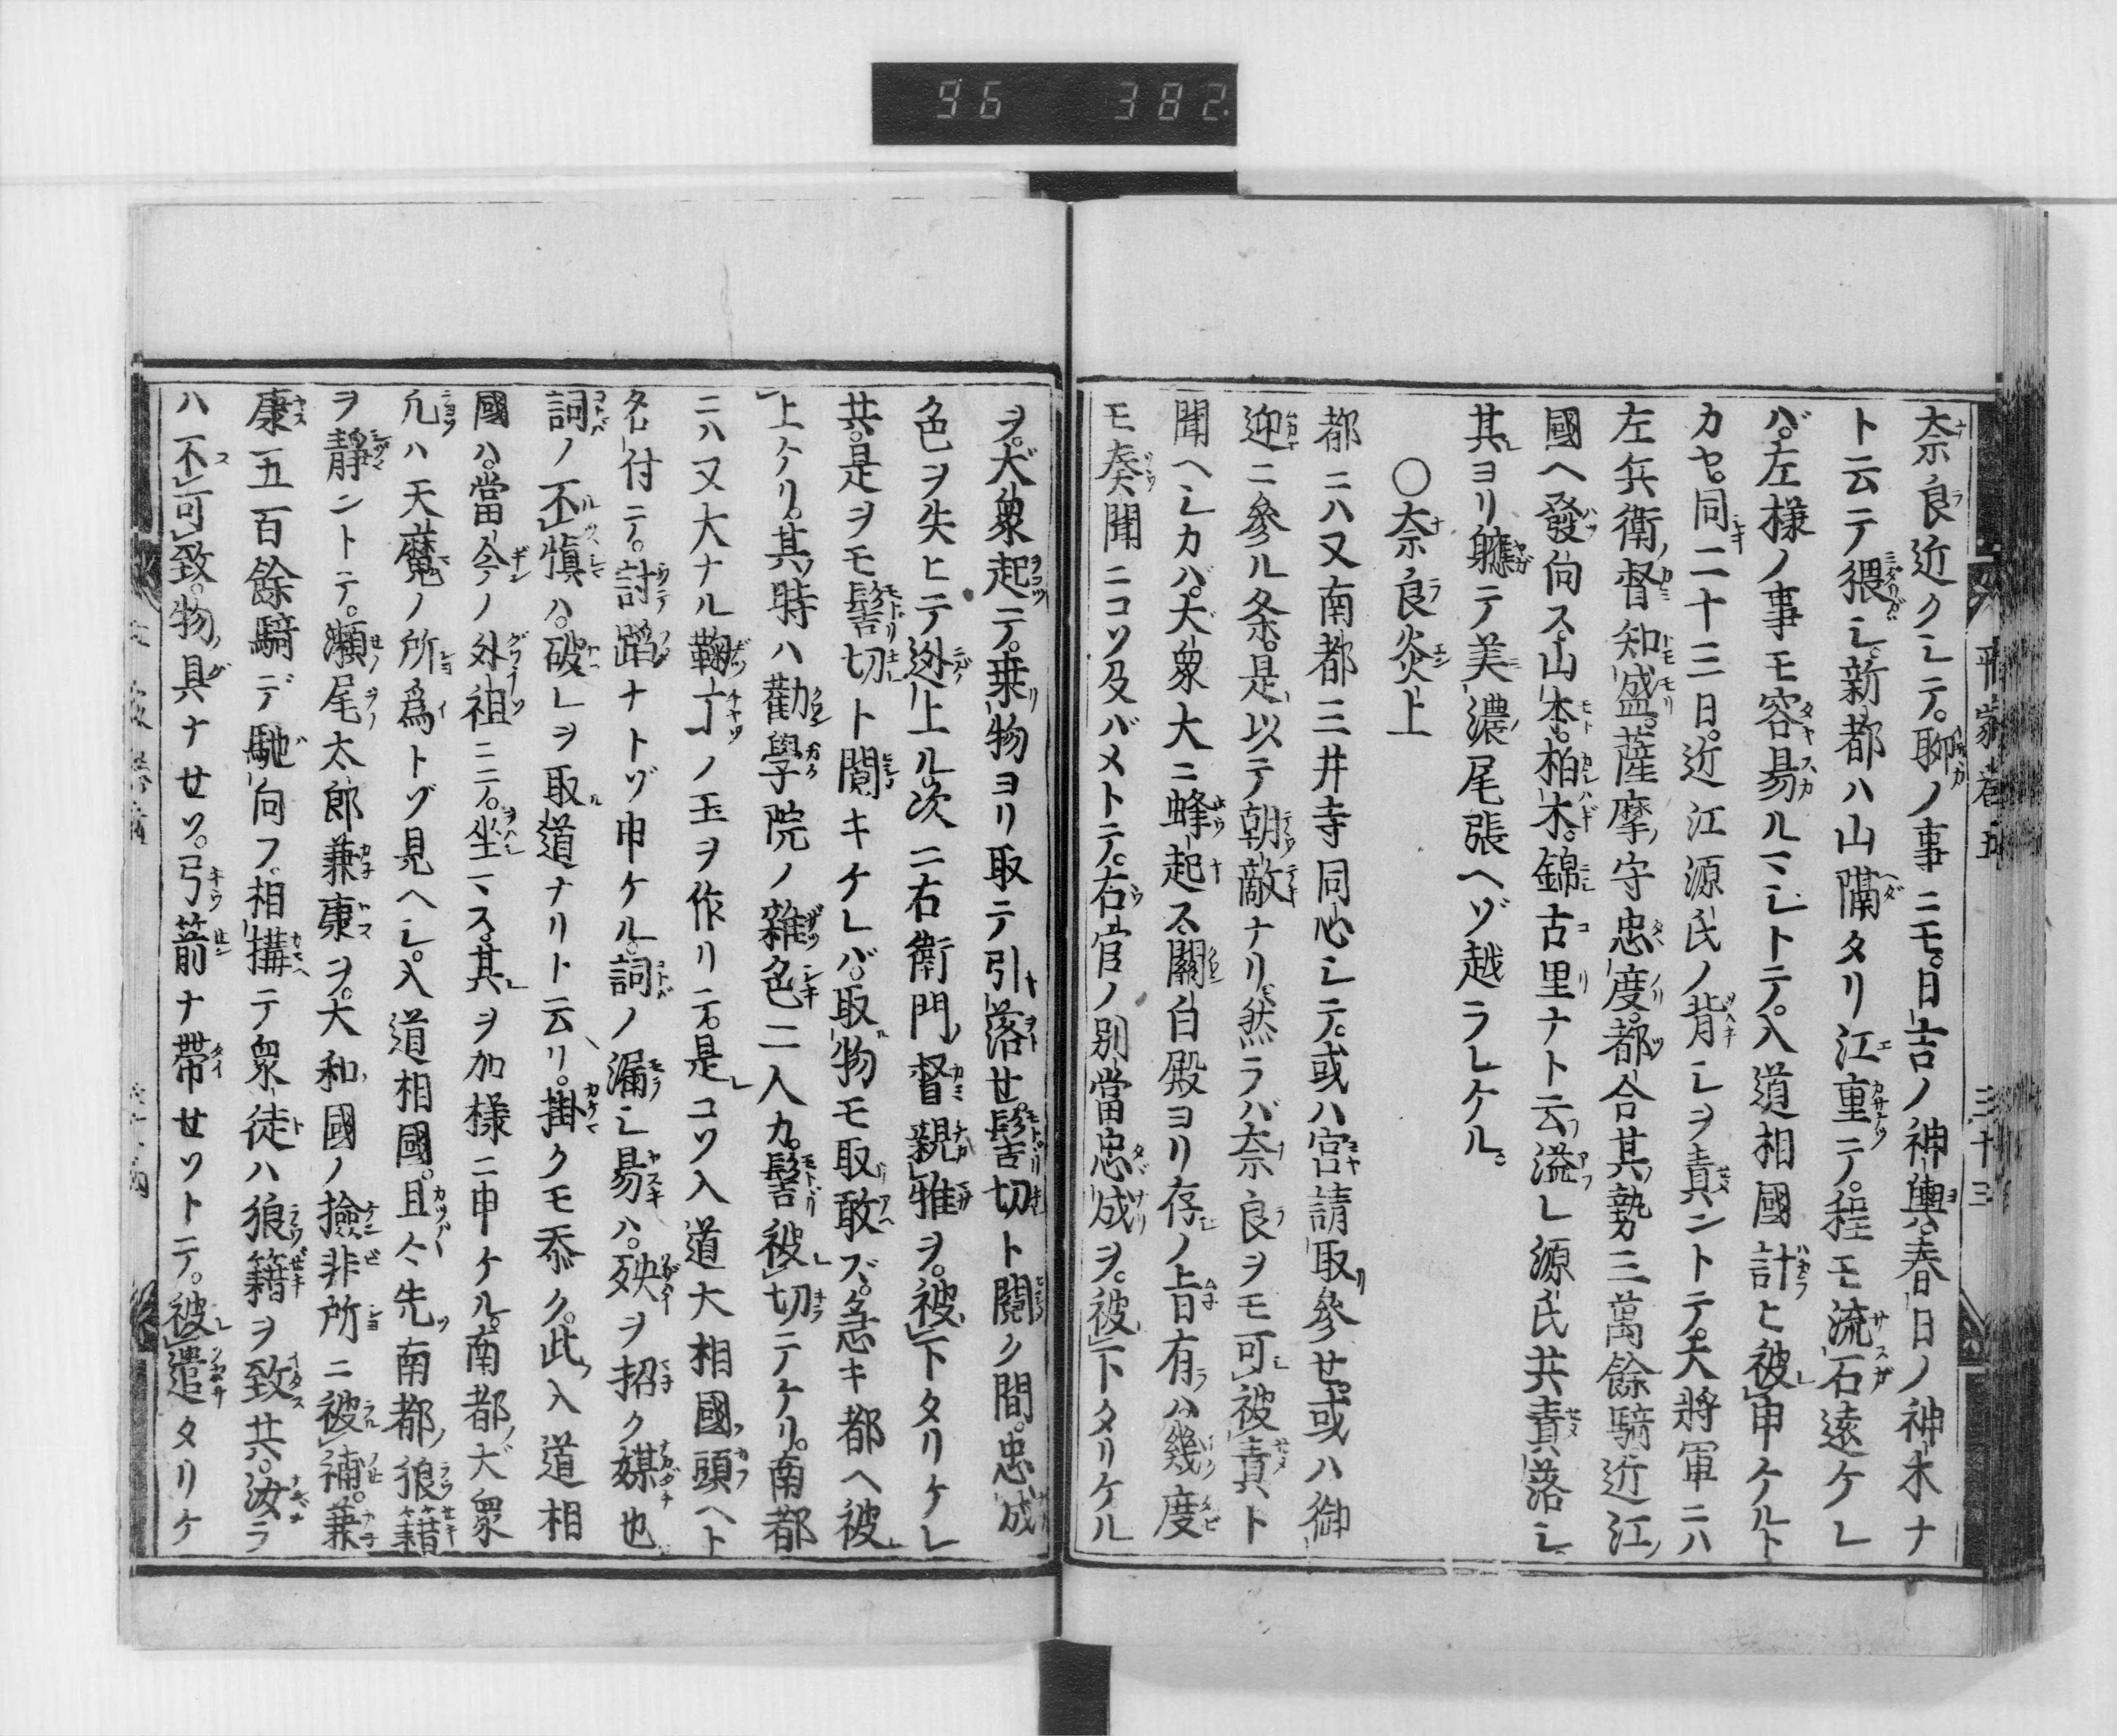 96 382.
平家巻五 三十三
奈良近クシテ。聊ノ事ニモ。日吉ノ神輿。春日ノ神木ナ
ト云テ猥シ。新都ハ山隔タリ江重テ。程モ流石遠ケレ
バ。左様ノ事モ容易ルマシトテ。入道相國計ヒ被申ケルト
カヤ。同二十三日。近江源氏ノ背シヲ責ントテ。大將軍ニハ
左兵衛督知盛。薩摩守忠度。都合其勢三萬餘騎近江
國ヘ發向ス。山本。柏木。錦古里ナト云溢レ源氏共責落シ
其ヨリ軈テ美濃尾張ヘゾ越ラレケル。
〇奈良炎上
都ニハ又南都三井寺同心シテ。或ハ宮請取參セ。或ハ御
迎ニ參ル条。是以テ朝敵ナリ。然ラバ奈良ヲモ可被責ト
聞ヘシカバ。大衆大ニ蜂起ス。關白殿ヨリ存ノ旨有ハ幾度
モ奏聞ニコソ及バメトテ。右官ノ別當忠成ヲ。被下タリケル
ヲ。大衆起テ。乗物ヨリ取テ引落セ。髻切ト鬩ク間。忠成
色ヲ失ヒテ迯上ル。次ニ右衛門督親雅ヲ。被下タリケレ
共。是ヲモ髻切ト鬩キケレバ。取物モ取敢ズ。急キ都ヘ被
上ケリ。其時ハ勸學院ノ雜色二人カ。髻被切ニテケリ。南都
ニハ又大ナル鞠丁ノ玉ヲ作リテ。是コソ入道大相國ノ頭ヘト
名付テ。討蹈ナトゾ申ケル。詞ノ漏シ易ハ。殃ヲ招ク媒也
詞ノ不愼ハ。破レヲ取道ナリト云リ。掛クモ忝ク。此入道相
國ハ。當今ノ外祖ニテ。坐マス。其ヲ加様ニ申ケル。南都ノ大衆
凢ハ天魔ノ所爲トゾ見ヘシ。入道相國。且々先南都ノ狼藉
ヲ靜ントテ。瀬尾太郎兼康ヲ。大和國ノ撿非所ニ被補。兼
康五百餘騎デ馳向フ。相搆テ衆徒ハ狼藉ヲ致共。汝ラ
ハ不可致。物具ナセソ。弓箭ナ帶セソトテ。被遣タリケ